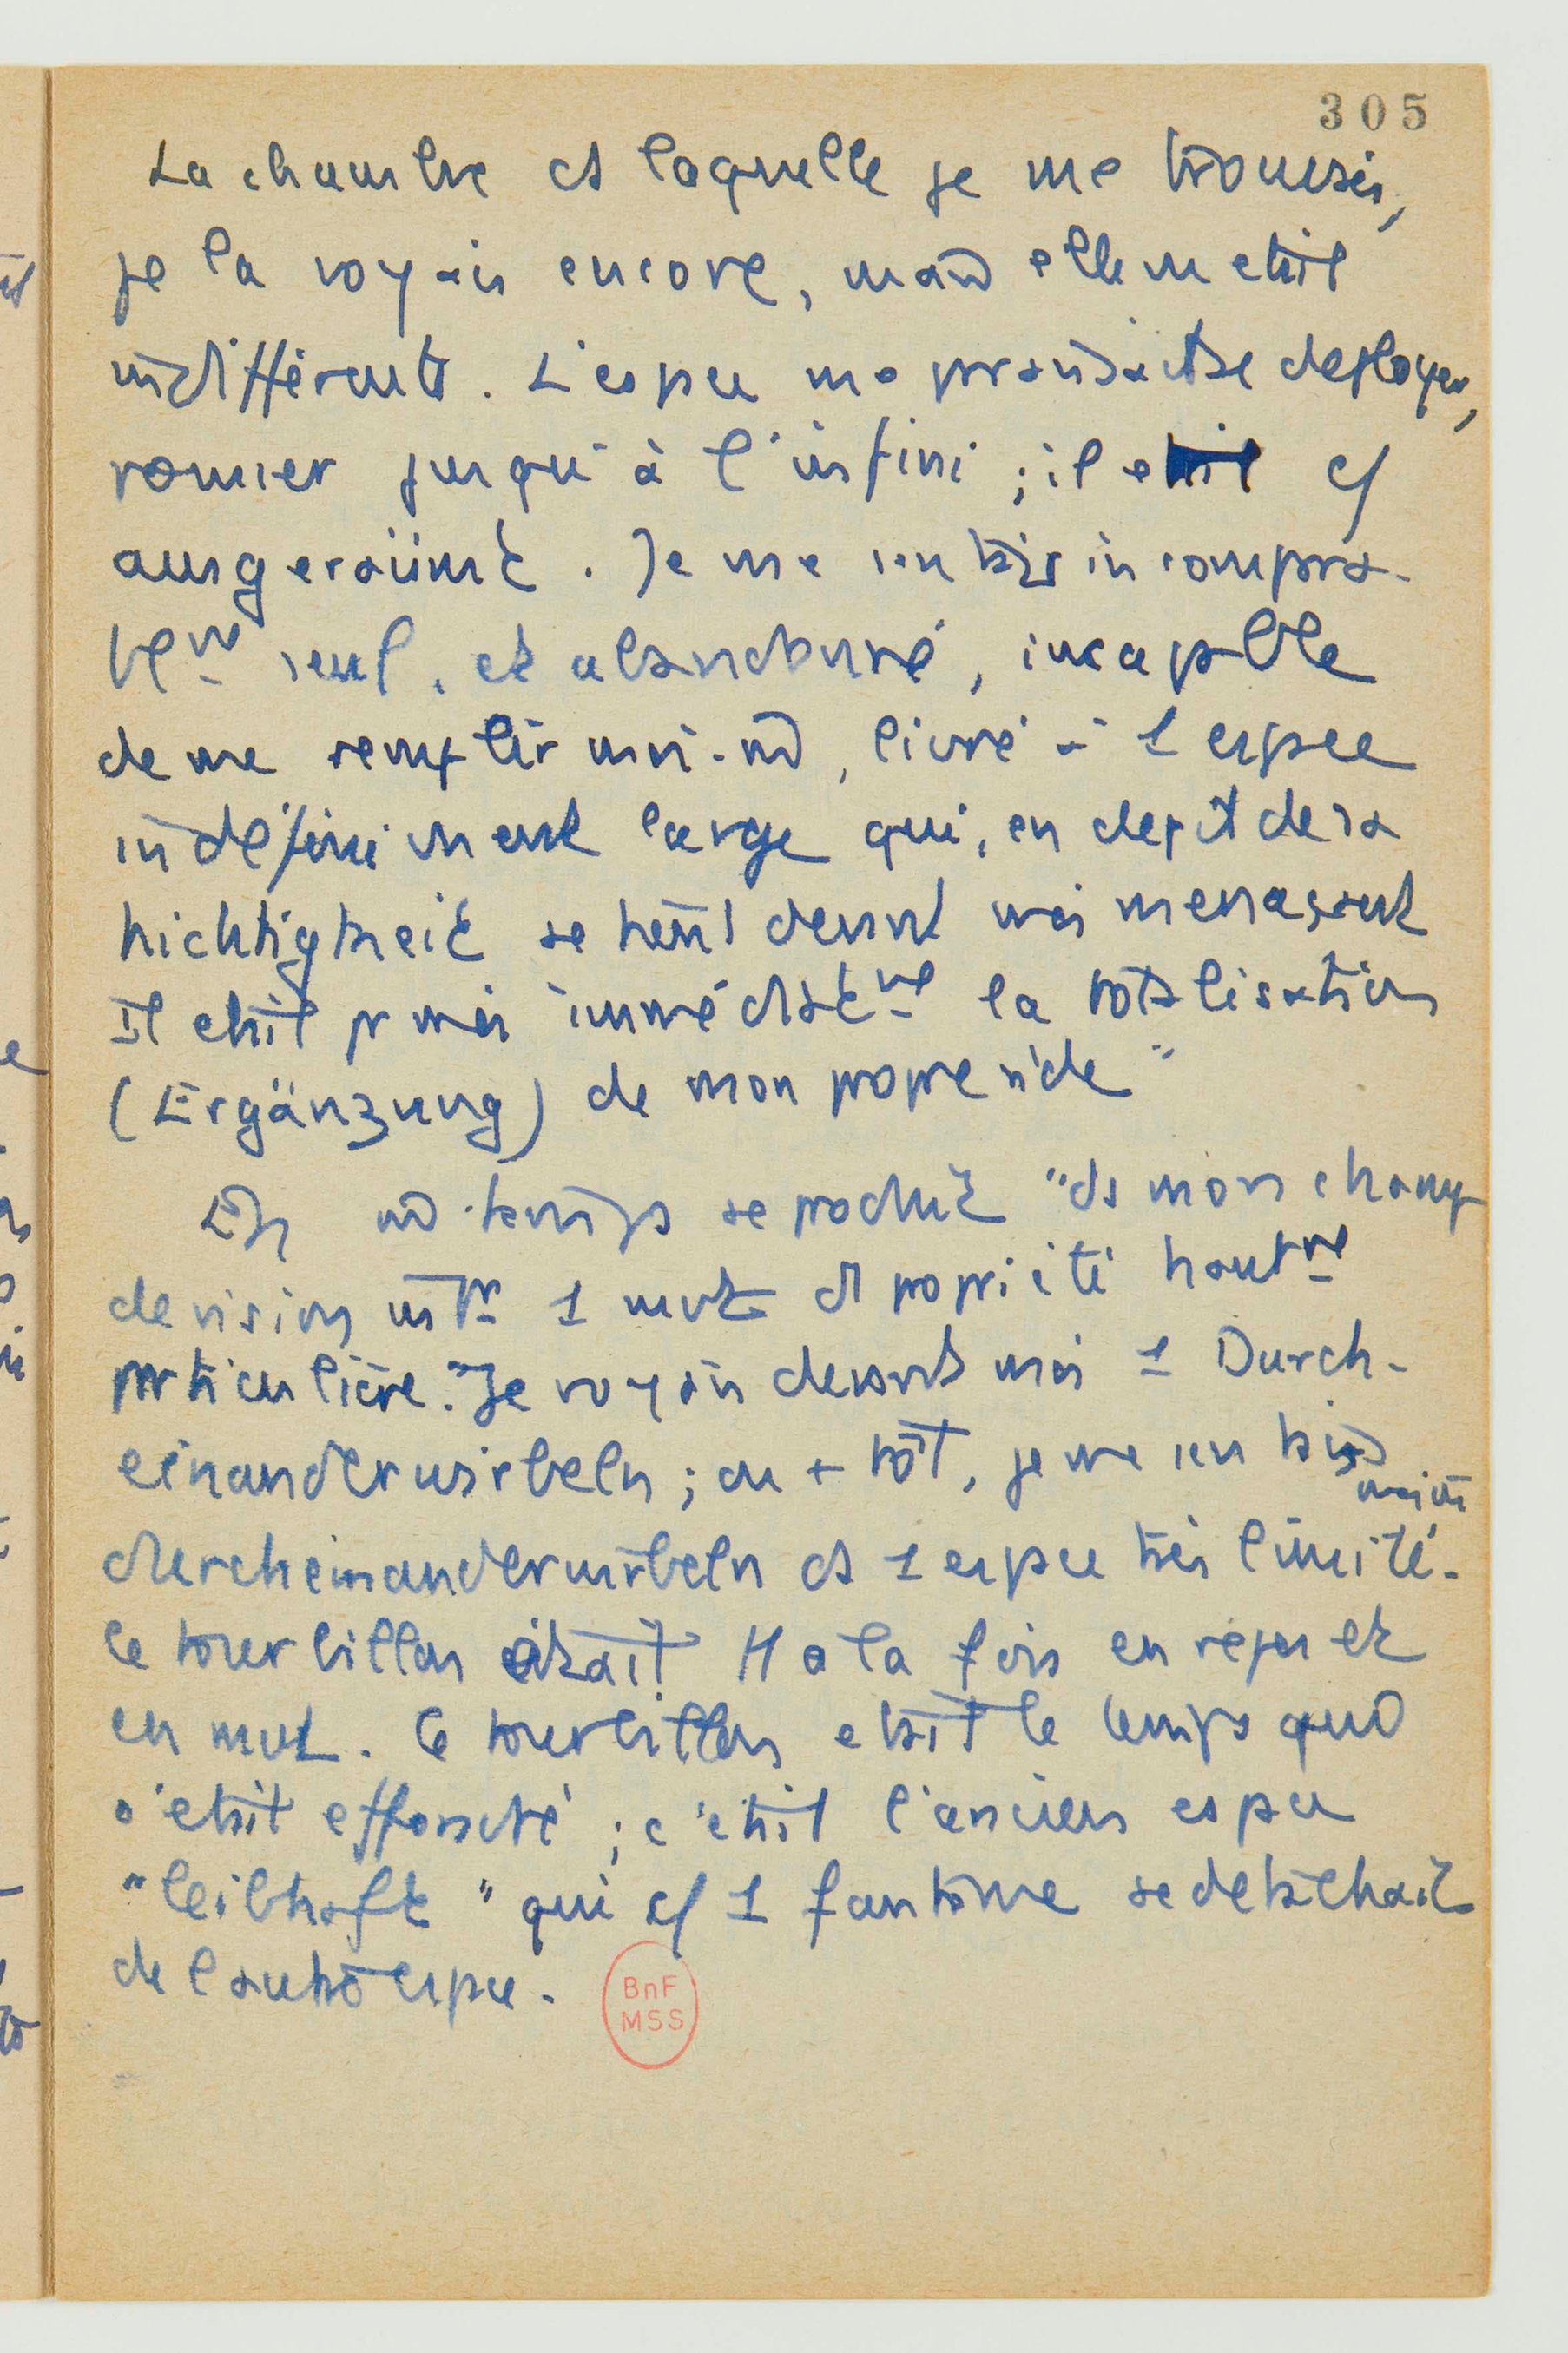 305
La chambre ds laquelle je me trouvais,
je la voyais encore, mais elle m'etait
indifférente. L'espace me paraissait se deployer,
jusqu'à l'infini ; il etait c/
ausgeräumt. Je me sentais incompara-
blemt seul, et abandonné, incapable
de me remplir moi-m̂, livré à 1 espace
indéfiniment large qui, en depit de sa
Nichtigkeit se tenait devant moi menaçant
Il etait pr moi immédiatemt la totalisation
(Ergänzung) de mon propre vide"
En m̂ temps se produit "ds mon champ
de vision 1 mvt d propriété hautemt
particulière. "Je voyais devant moi 1 Durch-
einanderwirbeln ; ou + tôt, je me sentais
moi m̂
durcheinanderwirbeln ds 1 espace très limité.
Le tourbillon était tt à la fois en repos et
en mvt. Ce tourbillon etait le temps qui
s'etait effondré ; c'etait l'ancien espace
"leibhaft" qui c/ 1 fantôme se detachait
de l'autre espace.
BnF
MSS